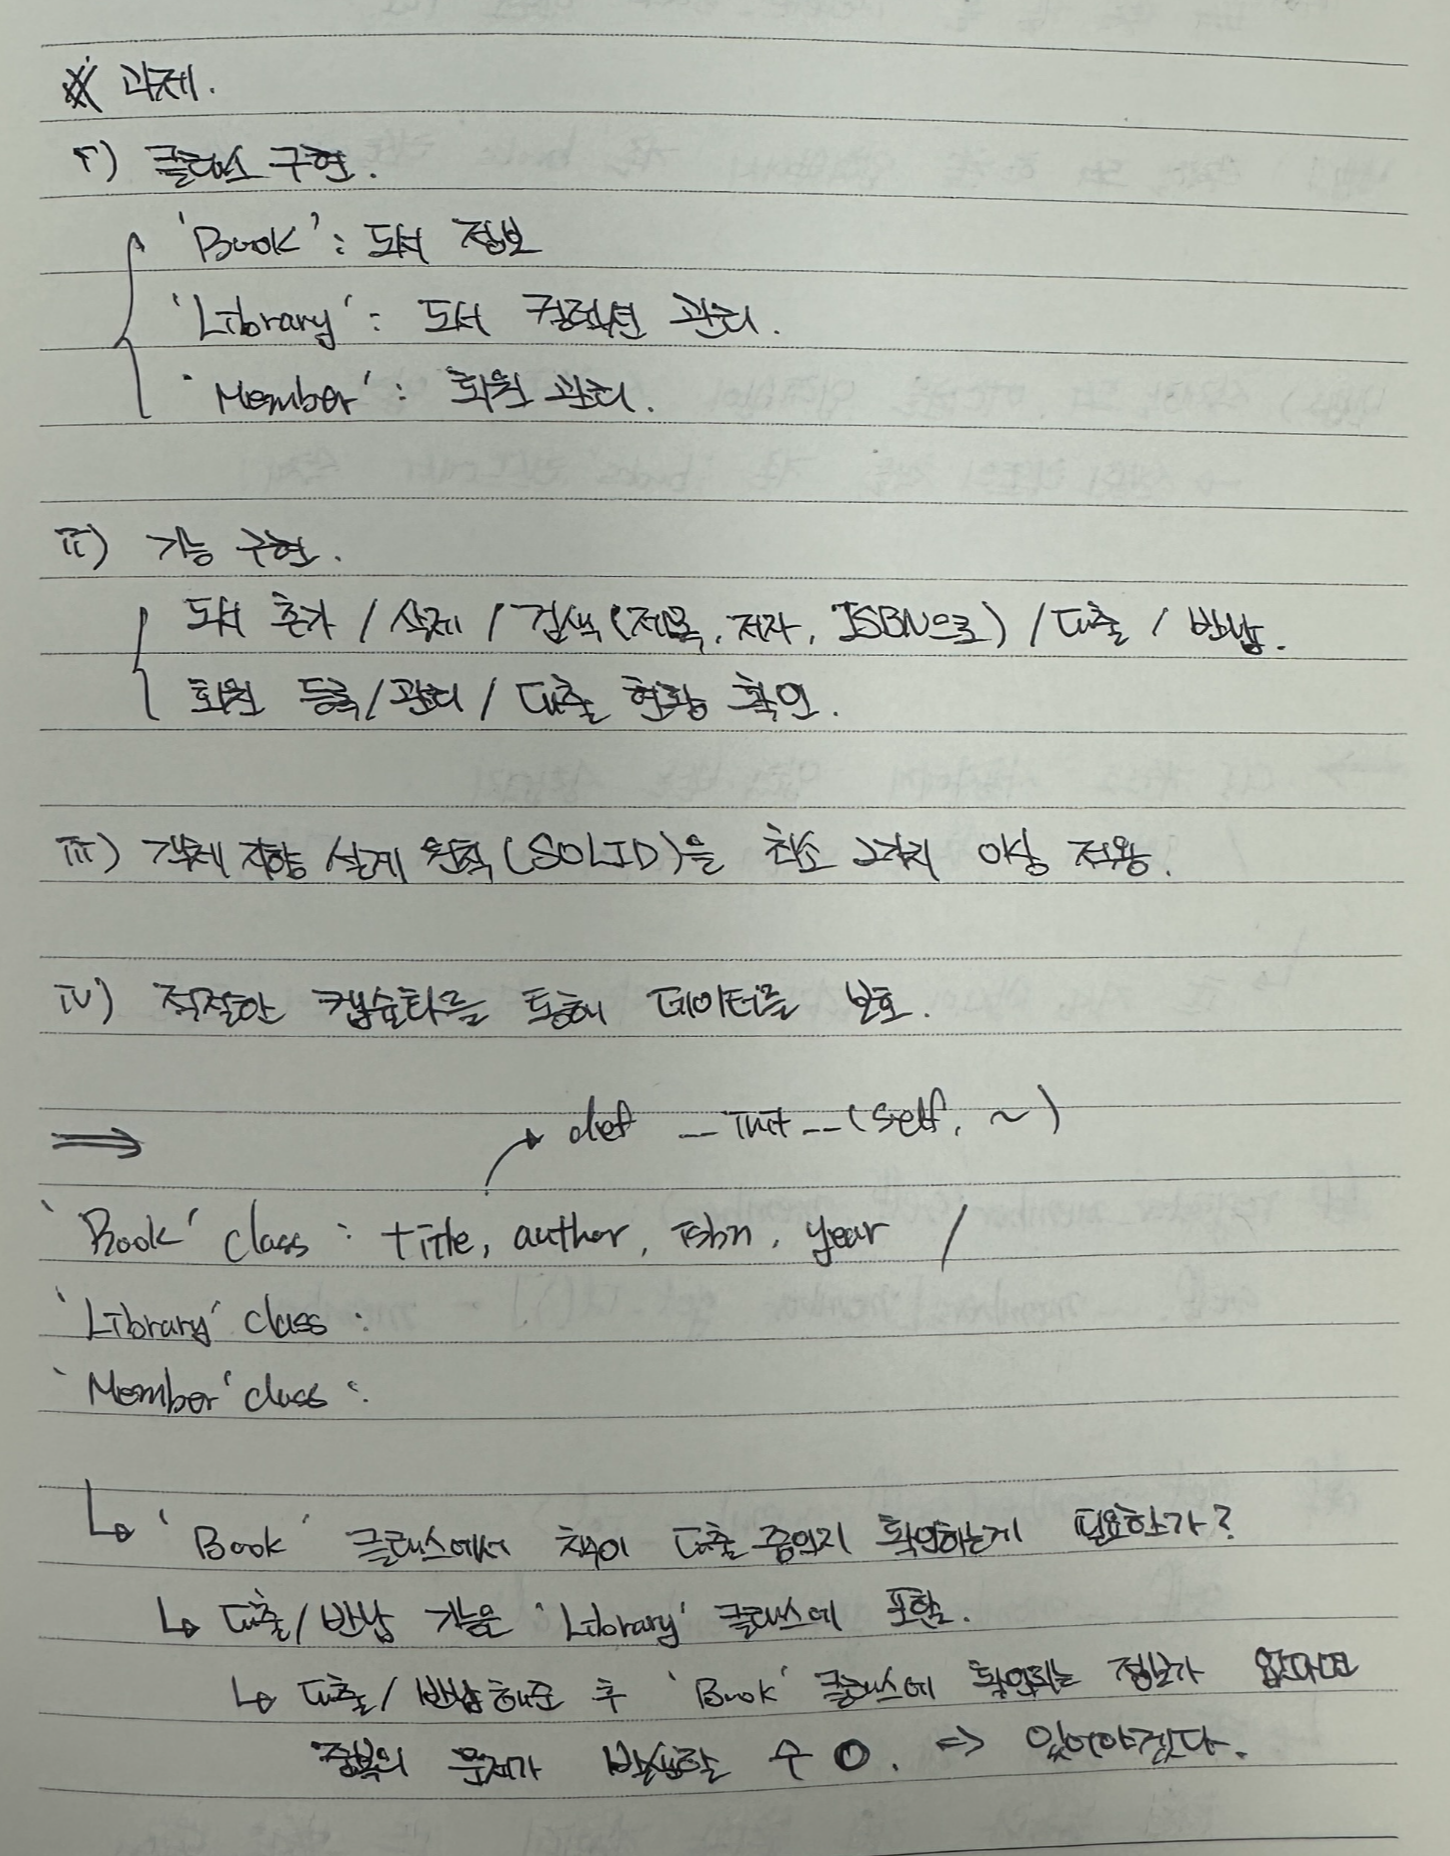 ※ 과제.
i) 클래스 구현.
'Book' : 도서 정보
'Library' : 도서 컬렉션 관리.
'Member' : 회원 관리.
ii) 기능 구현.
도서 추가 / 삭제 / 검색 (제목, 저자, ISBN으로) / 대출 / 반납.
회원 등록 / 관리 / 대출 현황 확인.
iii) 객체 지향 설계 원칙 (SOLID)을 최소 2가지 이상 적용.
iv) 적절한 캡슐화를 통해 데이터를 보호.
⇒ → def __init__(self, ~)
'Book' class : title, author, isbn, year /
'Library' class :
'Member' class :
↳ 'Book' 클래스에서 책이 대출 중인지 확인하는게 필요한가?
↳ 대출/반납 기능은 'Library' 클래스에 포함.
↳ 대출/반납해준 후 'Book' 클래스에 확인되는 정보가 없다면
중복의 문제가 발생할 수 O. ⇒ 있어야겠다.